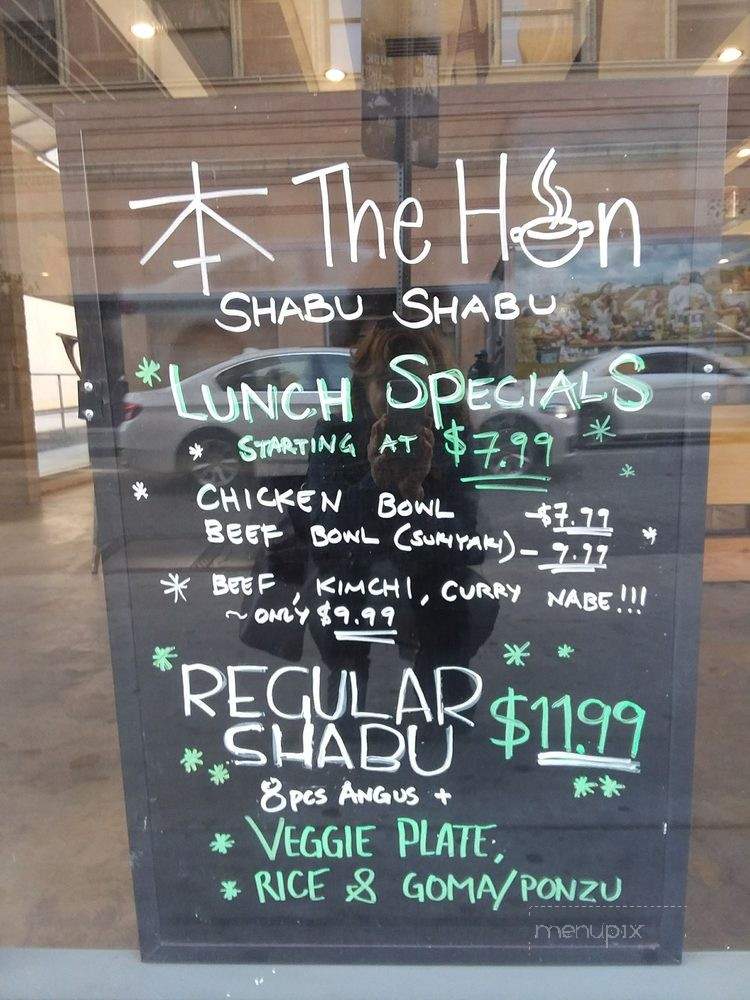 本 The Hon
SHABU SHABU
LUNCH SPECIALS
STARTING AT $7.99
CHICKEN BOWL -$7.99
BEEF BOWL (SUKIYAKI) - 9.99
BEEF, KIMCHI, CURRY NABE!!!
~ ONLY $9.99
REGULAR $11.99
SHABU
8pcs ANGUS +
VEGGIE PLATE,
RICE & GOMA/PONZU
menupix